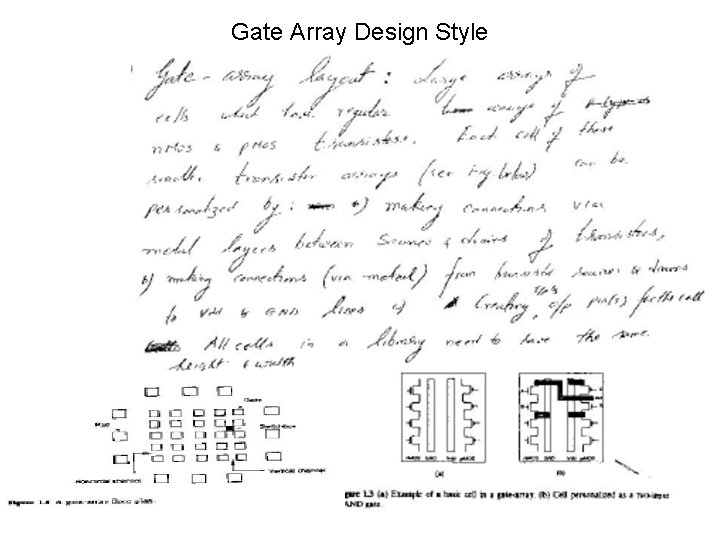 Gate Array Design Style
Gate-array layout: Large arrays of
cells which have regular arrays of
nMOS & pMOS transistors. Each cell of these
small transistor arrays (see Fig. below) can be
personalized by: a) making connections via
metal layers between sources & drains of transistors,
b) making connections (via metal) from transistor sources & drains
to Vdd & GND lines c) Creating i/p & o/p pin(s) for the cell
All cells in a library need to have the same
height & width
Gate
Pad
Switchbox
Horizontal channel
Vertical channel
Figure 1.4 A gate-array floor plan.
nMOS GND Vdd pMOS
nMOS GND Vdd pMOS
(a)
(b)
gure 1.3 (a) Example of a basic cell in a gate-array. (b) Cell personalized as a two-input
AND gate.